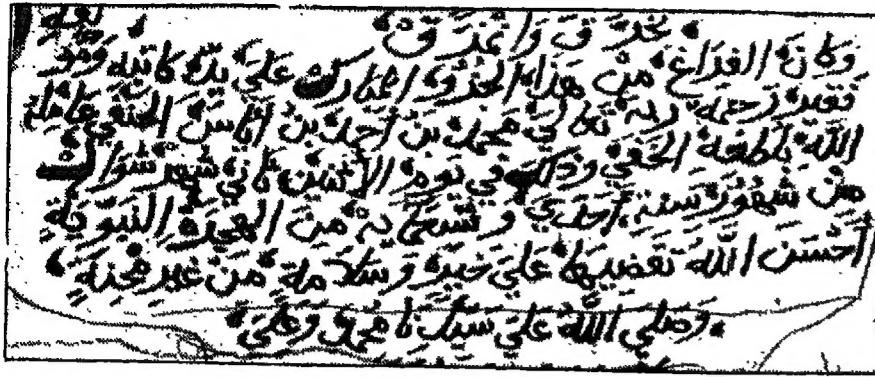 وَكَانَ الفَرَاغ مِنْ هَذَا الجُزْو المبارك عَلَي يَد كَاتبه وَهُوَ
فَقير رَحمَة ربه تعَالَي محمد بن أحمد بن اياس الحَنَفي عَامله
اللّه بلطفه الخَفي وذلك في يَوم الأثنين ثاني شهر شوال
من شهُور سَنة احدَي وتسعماية من الهجرة النَبَوّية
أحْسَنَ اللّه تقضيها عَلَي خير وَسَلامة منْ غير محنة
وَصَلي اللّهُ عَلَي سَيّدنا محمد وَعَلَي